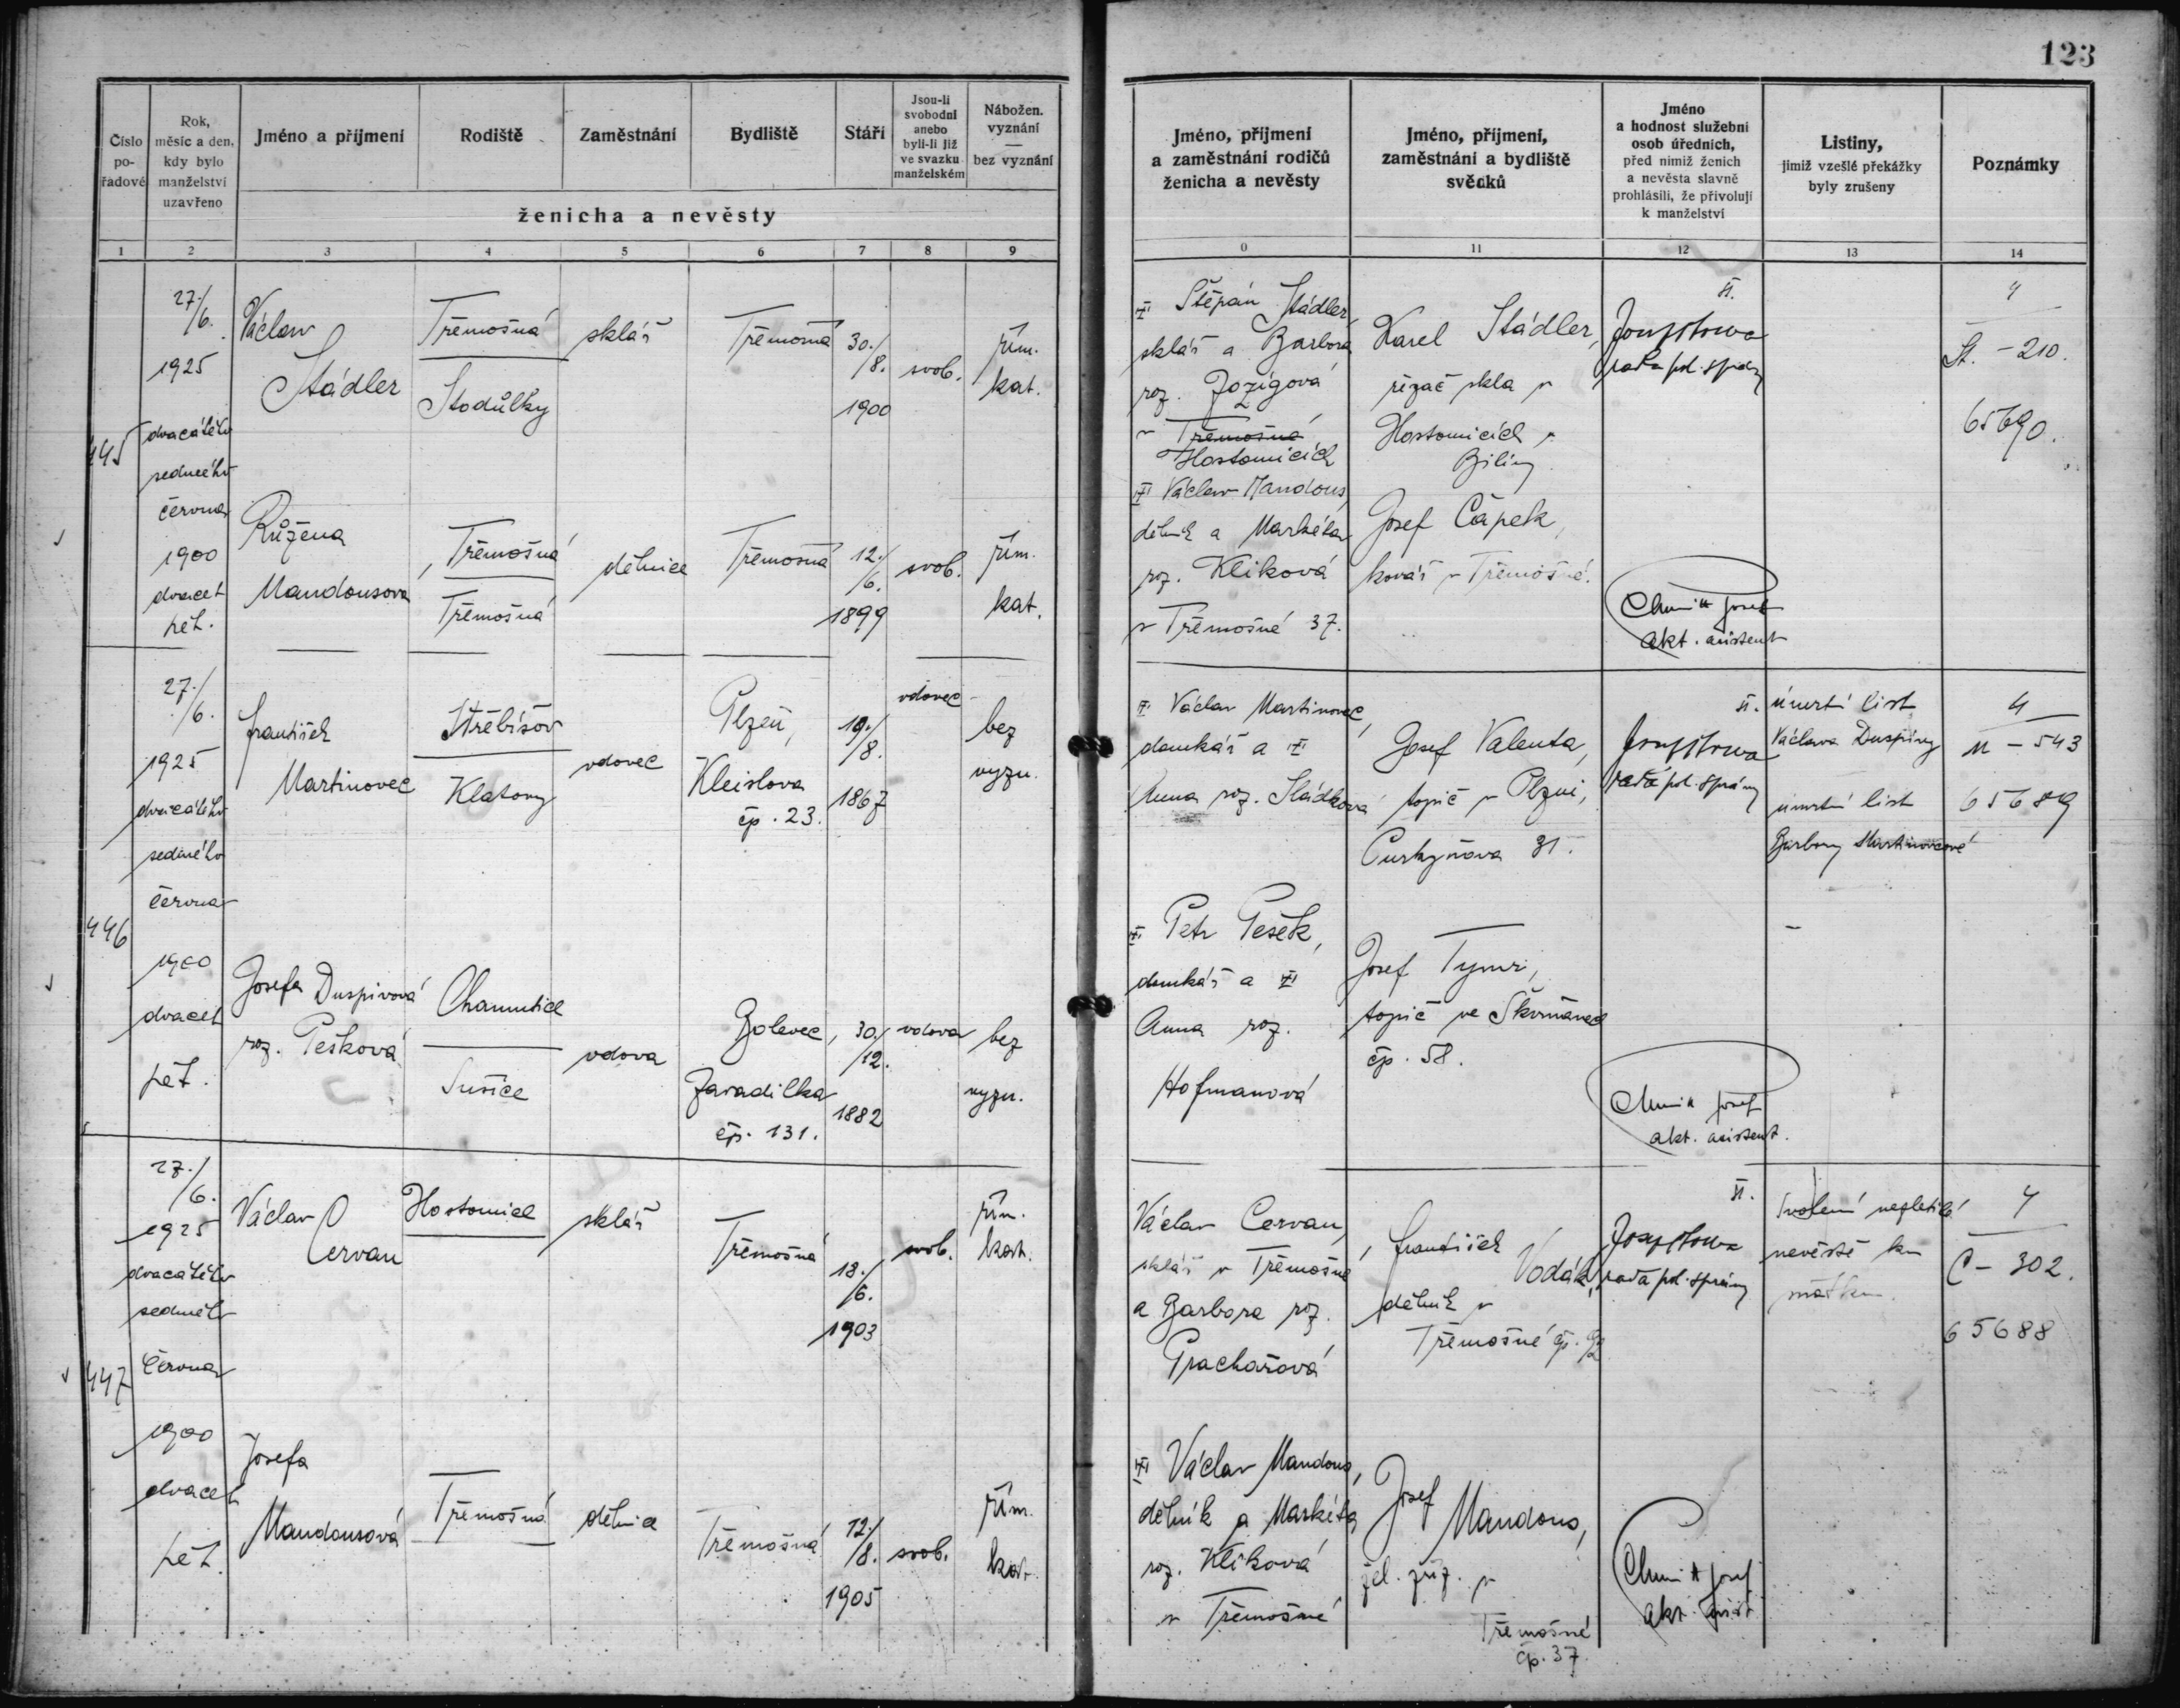 123
Číslo pořadové
Rok, měsíc a den, kdy bylo manželství uzavřeno
Jméno a příjmení
Rodiště
Zaměstnání
Bydliště
Stáří
Jsou-li svobodni anebo byli-li již ve svazku manželském
Nábožen. vyznání — bez vyznání
ženicha a nevěsty
1 2 3 4 5 6 7 8 9
Jméno, příjmení a zaměstnání rodičů ženicha a nevěsty
Jméno, příjmení, zaměstnání a bydliště svědků
Jméno a hodnost služební osob úředních, před nimiž ženich a nevěsta slavně prohlásili, že přivolují k manželství
Listiny, jimiž vzešlé překážky byly zrušeny
Poznámky
0 11 12 13 14
445
27./6.
1925
dvacátého
sedmého
června
1900
dvacet
pět.
Václav
Stádler
Třemošná
Stodůlky
sklář
Třemošná
30./8.
1900
svob.
řím.
kat.
Štěpán Stádler,
sklář a Barbora
roz.
v Třemošné
Hostomicích
Karel Stádler,
řezač skla v
Hostomicích
Bíliny
rada pol. správy
4
St. - 210.
65690.
Růžena
Mandousová
Třemošná
Třemošná
dělnice
Třemošná
12./6.
1899
svob.
řím.
kat.
Václav Mandous,
dělník a Markéta
roz. Kliková
v Třemošné 37.
Josef Čapek,
kovář v Třemošné.
Josef
akt. asistent
446
27./6.
1925
dvacátého
sedmého
června
1900
dvacet
pět.
František
Martinovec
Střebišov
Klatovy
vdovec
Plzeň,
Kleislova
čp. 23.
19./8.
1867
vdovec
bez
vyzn.
Václav Martinovec,
domkář a
Anna roz. Sládková
Josef Valenta,
topič v Plzni,
Purkyňova 31.
rada pol. správy
úmrtní list
Václava Duspivy
úmrtní list
Barbory Martinovcové
4
M - 543
65689
Josefa Duspivová
roz. Pešková
Chamutice
Sušice
vdova
Bolevec,
Zavadilka
čp. 131.
30./12.
1882
vdova
bez
vyzn.
Petr Pešek,
domkář a
Anna roz.
Hofmanová
Josef
topič ve Skvrňanech
čp. 58.
Josef
akt. asistent.
447
27./6.
1925
dvacátého
sedmého
června
1900
dvacet
pět.
Václav
Cervan
Hostomice
sklář
Třemošná
18./6.
1903
svob.
řím.
kat.
Václav Cervan,
sklář v Třemošné
a Barbora roz.
Prachařová
František
Vodák,
dělník v
Třemošné čp.
rada pol. správy
Svolení nezletilé
nevěstě
4
C - 302.
65688
Josefa
Mandousová
Třemošná
dělnice
Třemošná
12./8.
1905
svob.
řím.
kat.
Václav Mandous,
dělník a Markéta
roz. Kliková
v Třemošné
Josef
Mandous,
žel. zříz. v
Třemošné
čp. 37.
Josef
akt. asist.